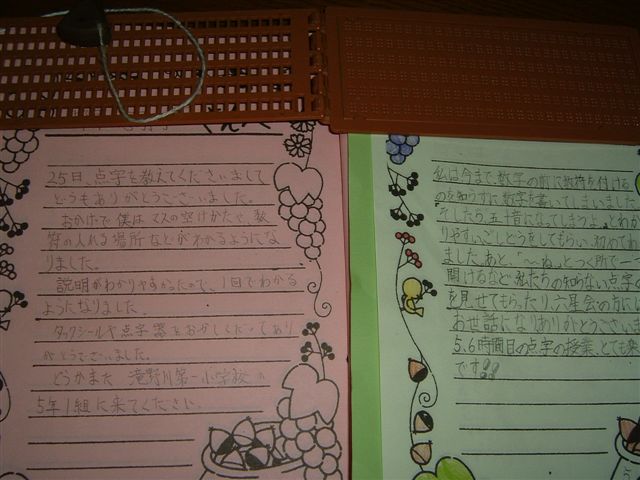 25日、点字を教えてくださいまして
どうもありがとうございました。
おかげで僕はマスの空けかたや、数
符の入れる場所などがわかるようにな
りました。
説明がわかりやすかったので、1回でわかる
ようになりました。
タックシールや点字器をおかしくださってあり
がとうございました。
どうかまた 滝野川第一小学校の
5年1組に来てください。
私は今まで数字の前に数符を付ける
のを知らずに数字を書いてしまいました
そしたら、五十音になってしまうよ。とわか
りやすい
ました。あと、〜ね、という所で一つ
開けるなど私たちの知らない点字の
を見せてもらったり、六星会の方にい
お世話になりありがとうございま
5、6時間目の点字の授業、とても楽
です!!